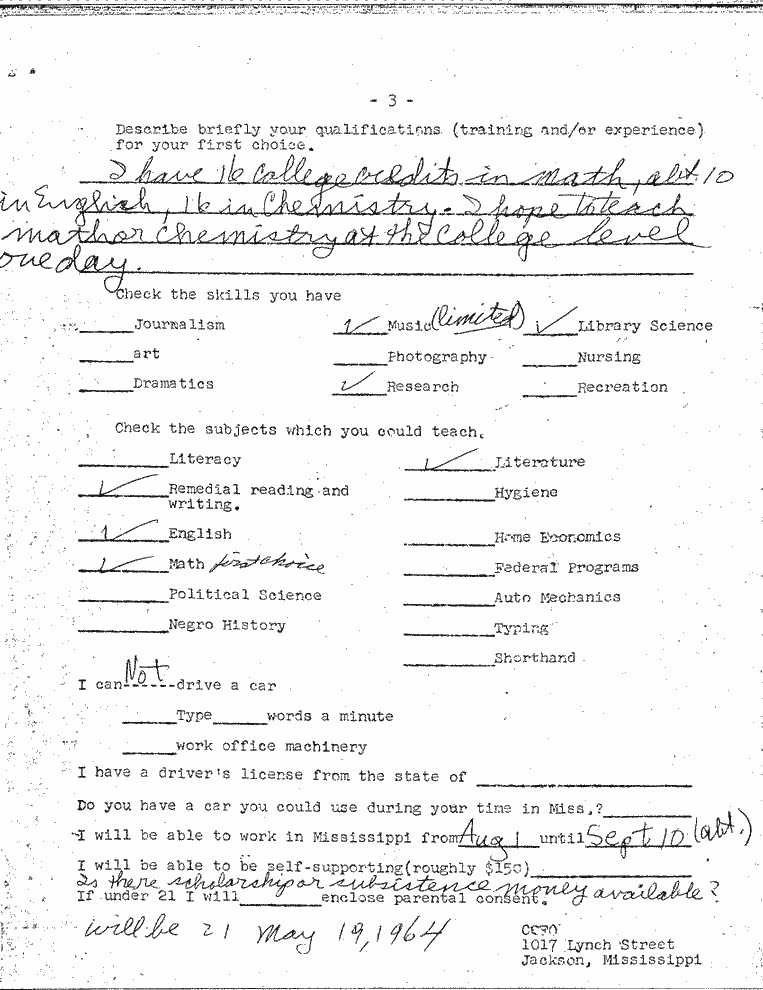 - 3 -
Describe briefly your qualifications (training and/or experience)
for your first choice.
I have 16 college credits in math, abt. 10
in English, 16 in Chemistry. I hope to teach
math or chemistry at the college level
one day.
Check the skills you have
Journalism ✓ Music (limited) ✓ Library Science
art Photography Nursing
Dramatics ✓ Research Recreation
Check the subjects which you could teach.
Literacy ✓ Literature
✓ Remedial reading and Hygiene
writing.
✓ English Home Economics
✓ Math first choice Federal Programs
Political Science Auto Mechanics
Negro History Typing
Shorthand
I can Not drive a car
Type words a minute
work office machinery
I have a driver's license from the state of
Do you have a car you could use during your time in Miss.?
I will be able to work in Mississippi from Aug 1 until Sept 10 (abt.)
I will be able to be self-supporting(roughly $150)
Is there scholarship or subsistence money available?
If under 21 I will enclose parental consent.
will be 21 May 19, 1964
1017 Lynch Street
Jackson, Mississippi